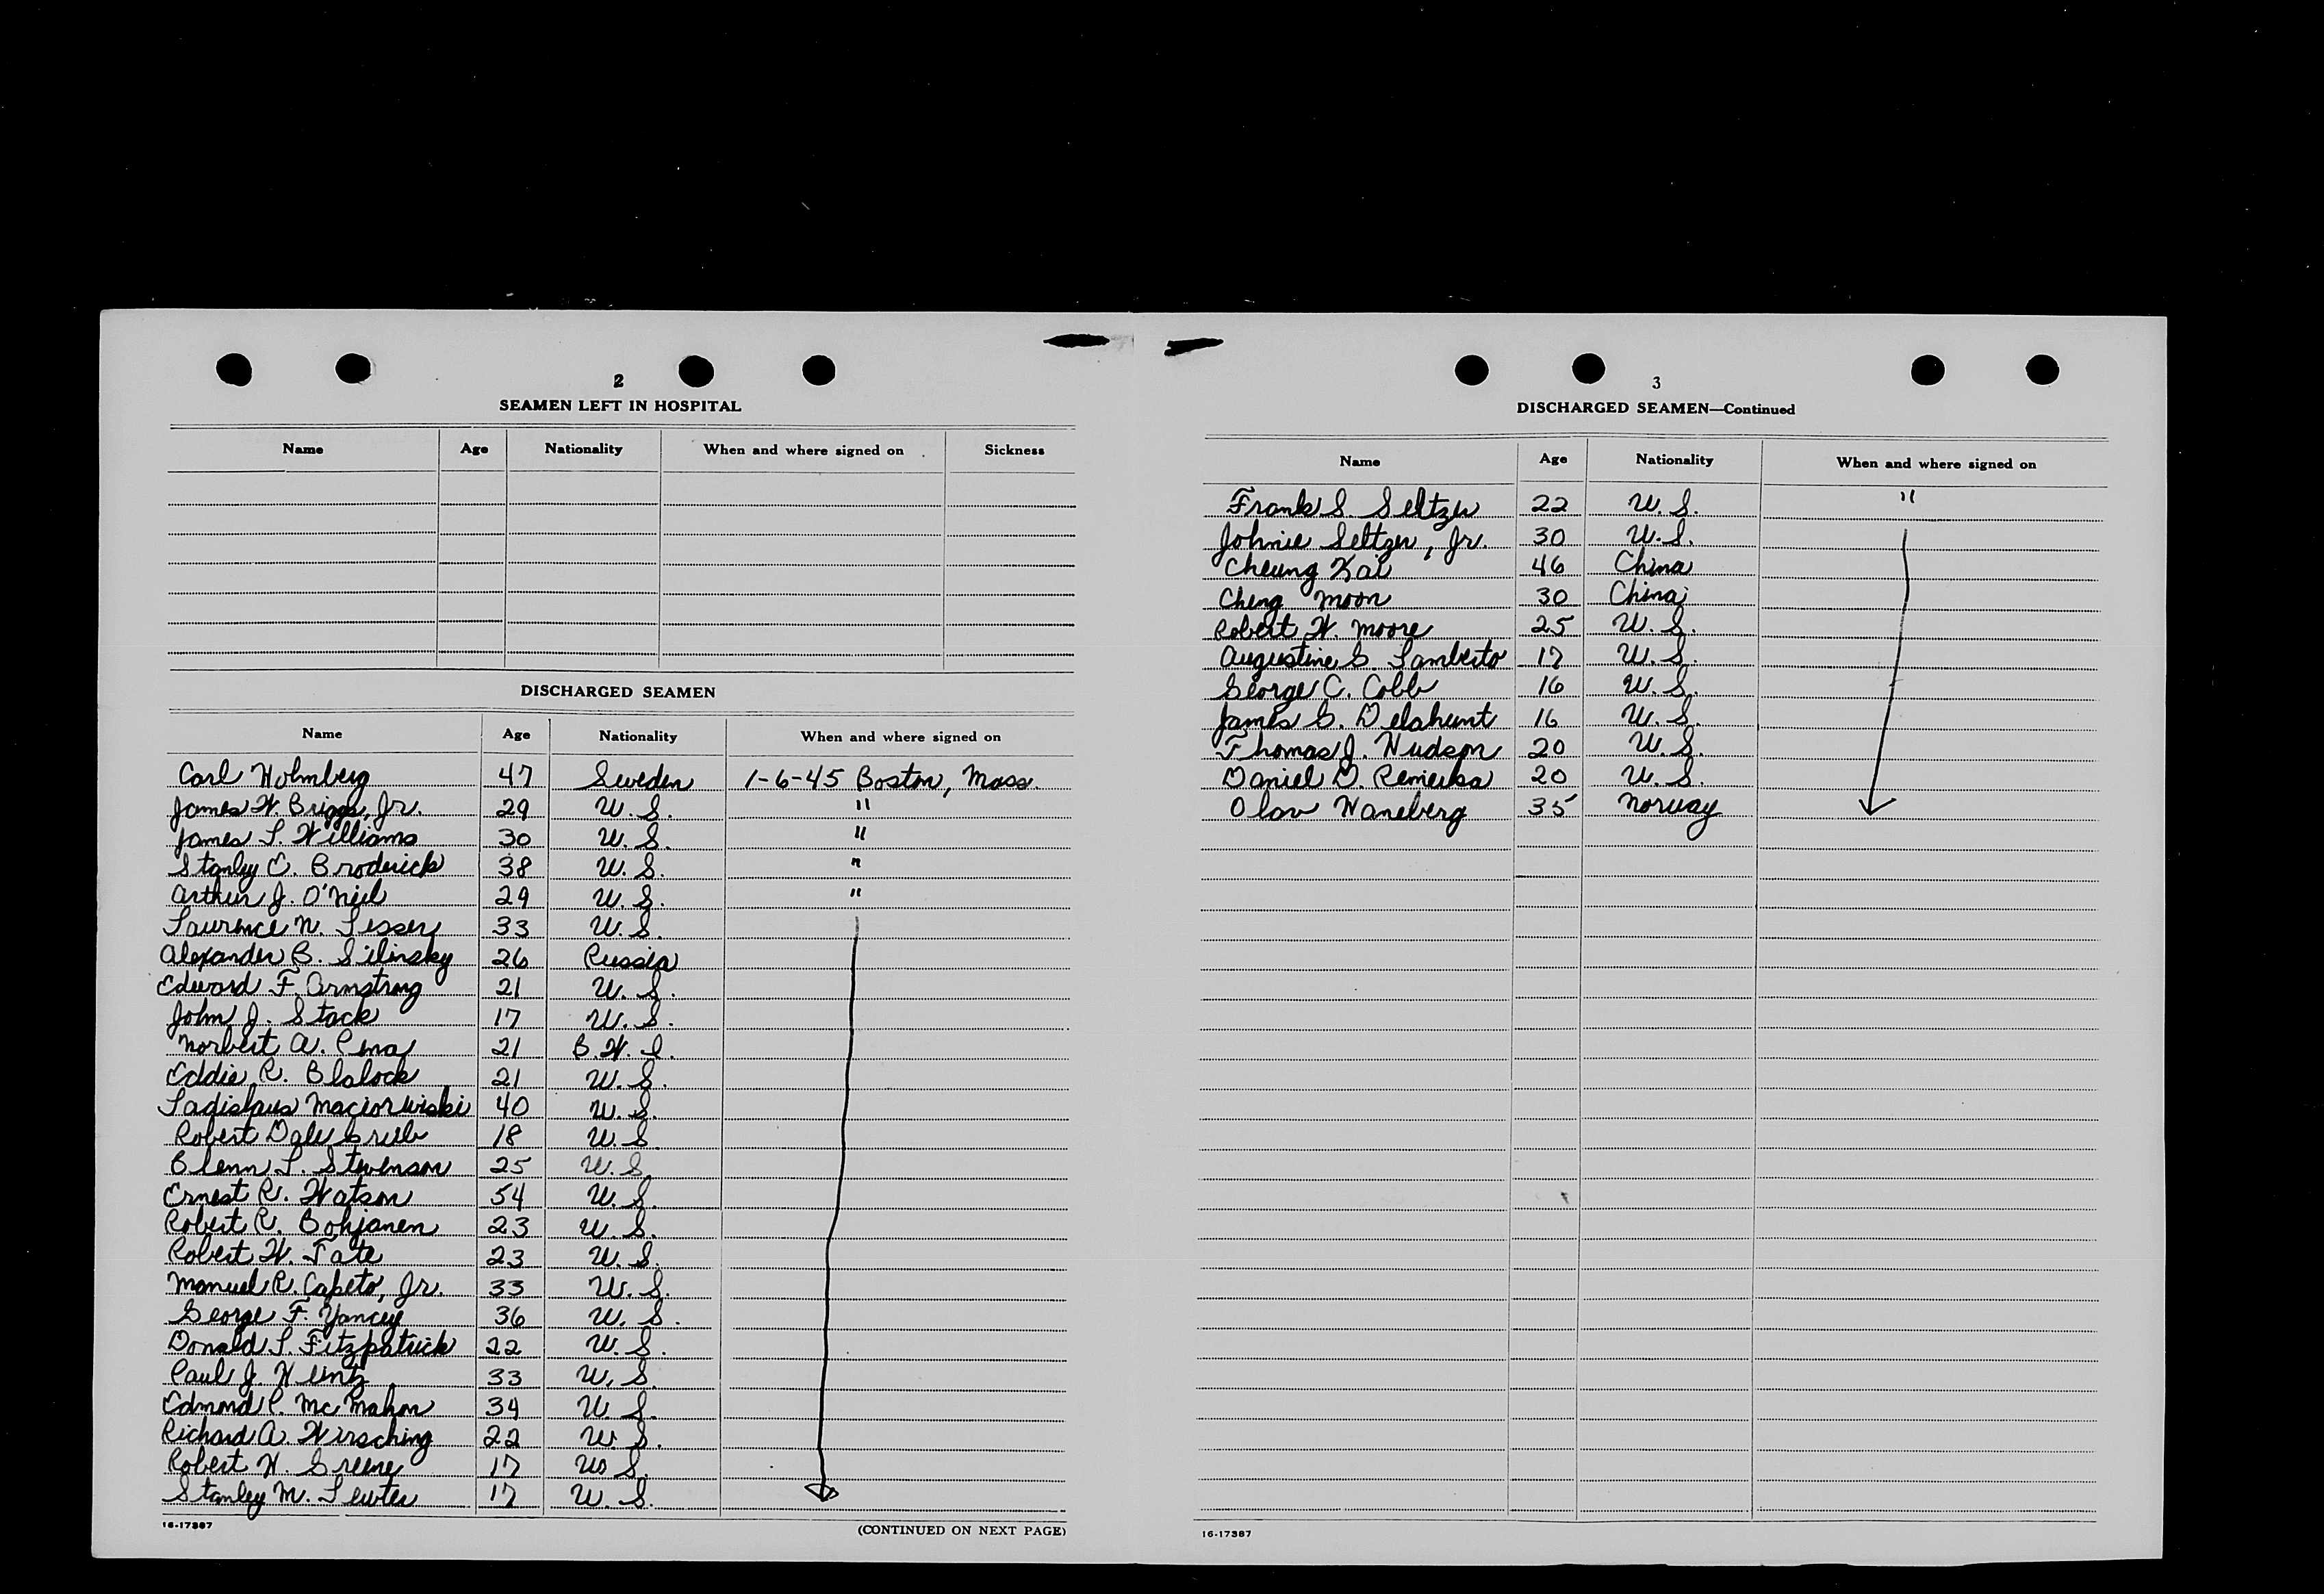 2
SEAMEN LEFT IN HOSPITAL
Name Age Nationality When and where signed on Sickness
DISCHARGED SEAMEN
Name Age Nationality When and where signed on
Carl Holmberg 47 Sweden 1-6-45 Boston, Mass.
James W. Briggs, Jr. 29 U.S. "
James L. Williams 30 U.S. "
Stanley E. Broderick 38 U.S. "
Arthur J. O'Neil 29 U.S. "
Laurence N. Lesser 33 U.S.
Alexander B. Silinsky 26 Russia
Edward F. Armstrong 21 U.S.
John J. Stack 17 U.S.
Norbert A. Pena 21 B.W.I.
Eddie R. Blalock 21 U.S.
Ladislaus 40 U.S.
Robert Dale 18 U.S
Glenn L. Stevenson 25 U.S.
Ernest R. Watson 54 U.S.
Robert R. Bohjanen 23 U.S.
Robert W. Tate 23 U.S.
Manuel R. Capeto, Jr. 33 U.S.
George F. Yancey 36 U.S.
Donald L. Fitzpatrick 22 U.S.
Paul J. Heintz 33 U.S.
Edmond P. McMahon 34 U.S.
Richard A. Wirsching 22 U.S.
Robert H. Greene 17 U.S.
Stanley M. Lewter 17 U.S.
16-17387 (CONTINUED ON NEXT PAGE)
3
DISCHARGED SEAMEN—Continued
Name Age Nationality When and where signed on
Frank S. Seltzer 22 U.S. "
Johnie Seltzer, Jr. 30 U.S.
Cheung Kai 46 China
Cheng Moon 30 China
Robert W. Moore 25 U.S.
Augustine G. Lamberto 17 U.S.
George C. Cobb 16 U.S.
James G. Delahunt 16 U.S.
Thomas J. Hudson 20 U.S.
Daniel D. 20 U.S.
Olav Haneberg 35 Norway
16-17387